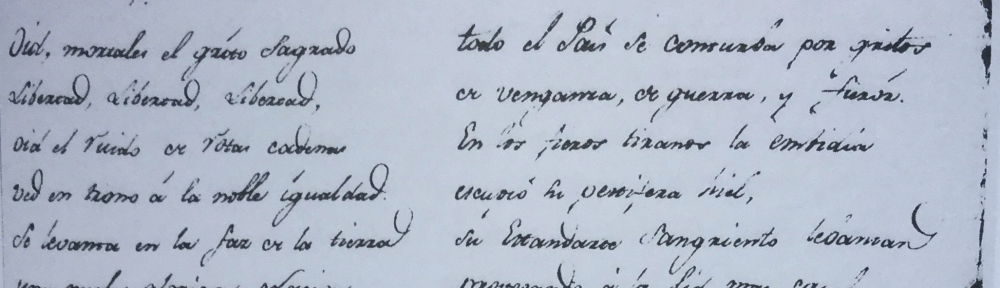 Oid, mortales el grito Sagrado
Libertad, Libertad, Libertad,
oid el ruido de rotas cadenas
ved en trono á la noble igualdad.
Se levanta en la faz de la tierra
una nueva gloriosa
todo el País se conturba por gritos
de venganza, de guerra, y furór.
En los fieros tiranos la embidia
escupió su pestifera hiel,
su Estandarte Sangriento levantan
provocando á la lid mas